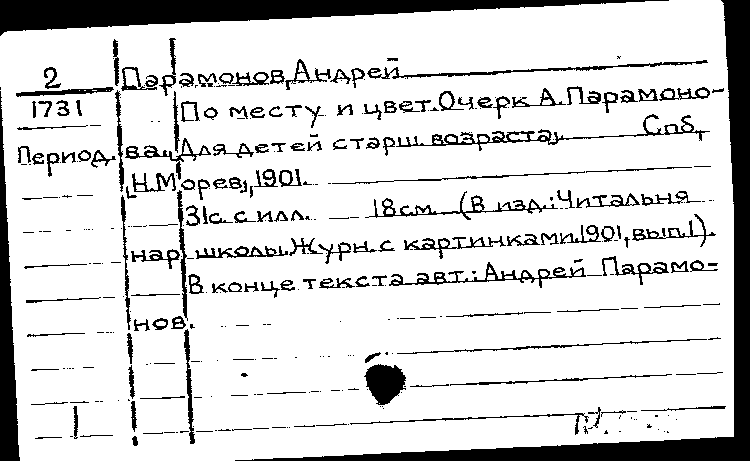 2 Парамонов, Андрей
1731 По месту и цвет. Очерк А. Парамоно-
Период. ва. „Для детей старш. возраста“. Спб,
[Н. Морев], 1901.
31с. с илл. 18см (В изд.: Читальня
нар. школы. Журн. с картинками. 1901, вып. 1).
В конце текста авт.: Андрей Парамо-
нов.
1